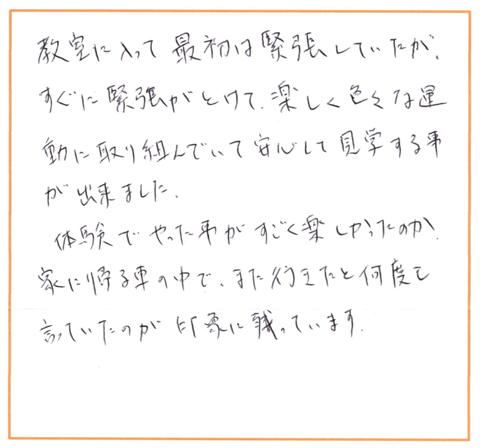 教室に入って最初は緊張していたが、
すぐに緊張がとけて、楽しく色々な運
動に取り組んでいて安心して見学する事
が出来ました。
体験でやった事がすごく楽しかったのか、
家に帰る車の中で、また行きたと何度も
言っていたのが印象に残っています。